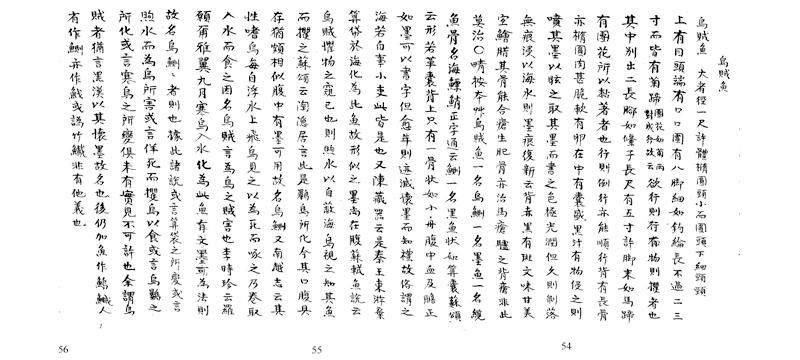 烏賊魚
烏賊魚 大者徑一尺許體橢圓頭小而圓頭下細頸頸
上有目頭端有口口圍有八脚細如釣緡長不過二三
寸而皆有菊蹄團花如菊兩兩對成分故云欲行則行有物則攫者也
其中別出二長脚如絛子長尺有五寸許脚末如馬蹄
有團花所以黏著者也行則倒行亦能順行背有長骨
亦橢圓肉甚脆軟有卵在中有囊盛黑汁有物侵之則
噴其墨以眩之取其墨而書之色極光潤但久則剝落
無痕浸以海水則墨痕復新云背赤黑有斑文味甘美
宜鱠腊其骨能合瘡生肌骨亦治馬瘡驢之背瘡非此
莫治○晴按本艸烏賊魚一名烏鰂一名墨魚一名纜
魚骨名海鰾鮹正字通云鰂一名黑魚狀如算囊蘇頌
云形若革囊背上只有一骨狀如小舟腹中血及膽正
如墨可以書字但逾年則迹滅懷墨而知禮故俗謂之
海若白事小吏此皆是也又陳藏器云是秦王東遊棄
算袋於海化為此魚故形似之墨尚在腹蘇軾魚說云
烏賊懼物之窺己也則呴水以自蔽海烏視之知其魚
而攫之蘇頌云陶隱居言此是鸔烏所化今其口腹具
存猶頗相似腹中有墨可用故名烏鰂又南越志云其
性嗜烏每自浮水上飛烏見之以為死而啄之乃卷取
入水而食之因名烏賊言為烏之賊害也李時珍云羅
願爾雅翼九月寒烏入水化為此魚有文墨可為法則
故名烏鰂鰂者則也據此諸說或言算袋之所變或言
呴水而為烏所害或言佯死而攫烏以食或言烏鸔之
所化或言寒烏之所變俱未有實見不可許也余謂烏
賊者猶言黑漢以其懷墨故名也後仍加魚作鰞鱡人
有作鰂亦作 或謂竹鱡非有他義也
54
55
56